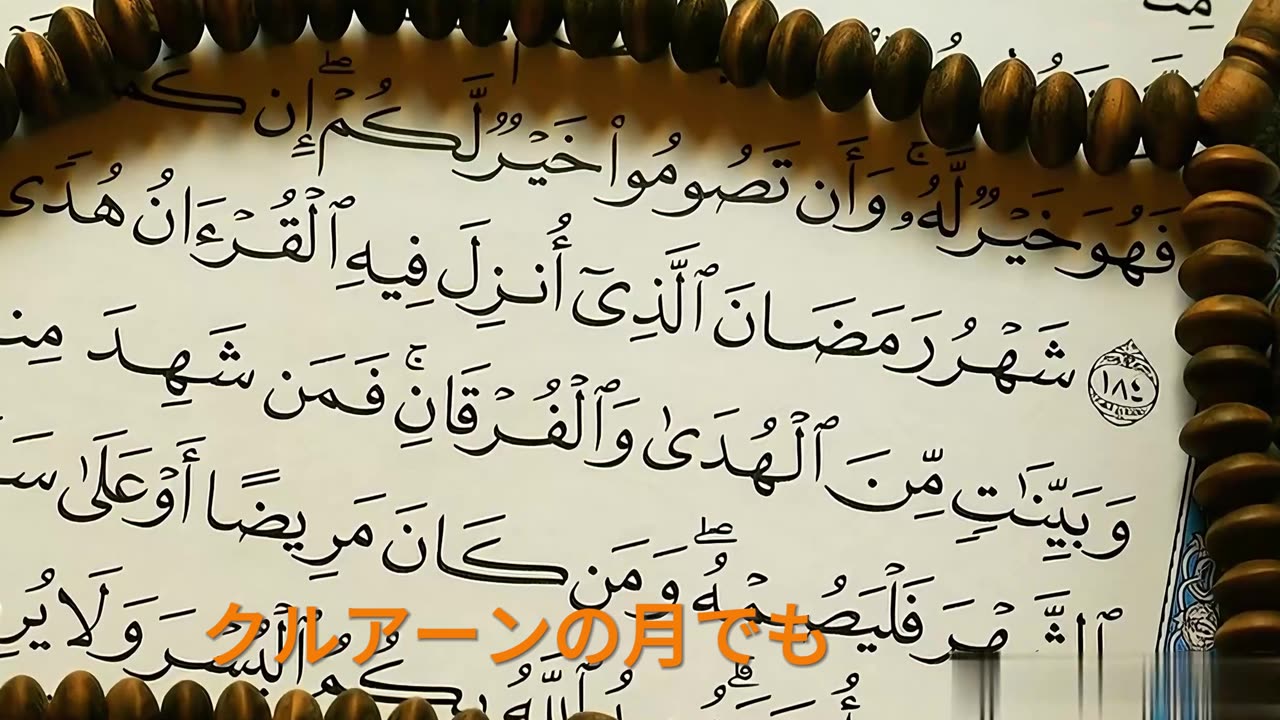 فَهُوَ خَيْرٌ لَّهُۥ ۚ وَأَن تَصُومُوا۟ خَيْرٌ لَّكُمْ ۖ إِن
١٨٤ شَهْرُ رَمَضَانَ ٱلَّذِىٓ أُنزِلَ فِيهِ ٱلْقُرْءَانُ هُدًى
وَبَيِّنَٰتٍ مِّنَ ٱلْهُدَىٰ وَٱلْفُرْقَانِ ۚ فَمَن شَهِدَ
ٱلشَّهْرَ فَلْيَصُمْهُ ۖ وَمَن كَانَ مَرِيضًا أَوْ عَلَىٰ
ٱللَّهُ بِكُمُ ٱلْيُسْرَ وَلَا
クルアーンの月でも